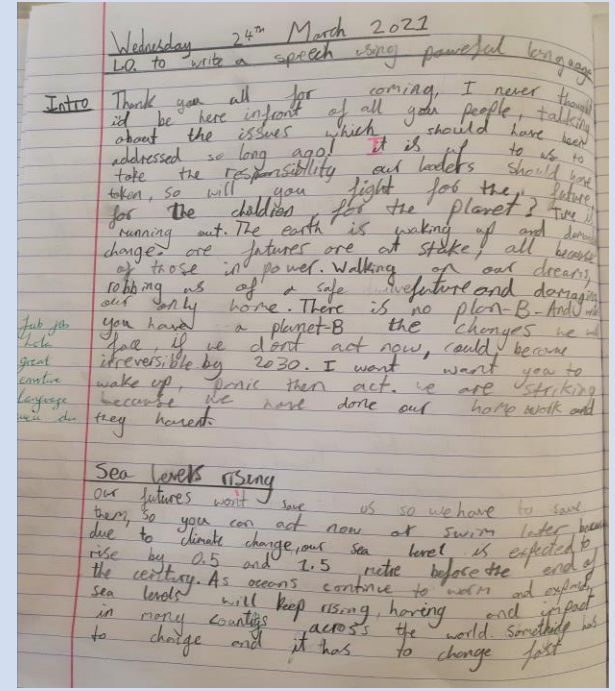 Wednesday 24th March 2021
L.O. to write a speech using poweful language
Intro
Thank you all for coming, I never thought
id be here infront of all you people, talking
about the issues which should have been
addressed so long ago! it is up to us to
take the responsibility our leaders should have
token, so will you fight for the future,
for the children, for the planet? Time is
running out. The earth is waking up and
change. are futures are at stake, all because
of those in power. Walking on our dreams,
robbing us of a safe future and damaging
our only home. There is no plan-B. And
you have a planet-B the changes we
face, if we dont act now, could become
irreversible by 2030. I want want you to
wake up, panic then act. we are striking
because we have done our home work and
they havent.
great
language
Sea levels rising
our futures wont save us so we have to save
them, so you can act now or swim later because
due to climate change, our sea level is expected to
rise by 0.5 and 1.5 metre before the end of
the century. As oceans continue to warm and expand,
sea levels will keep rising, having and impact
in many countrys across the world. Something has
to change and it has to change fast